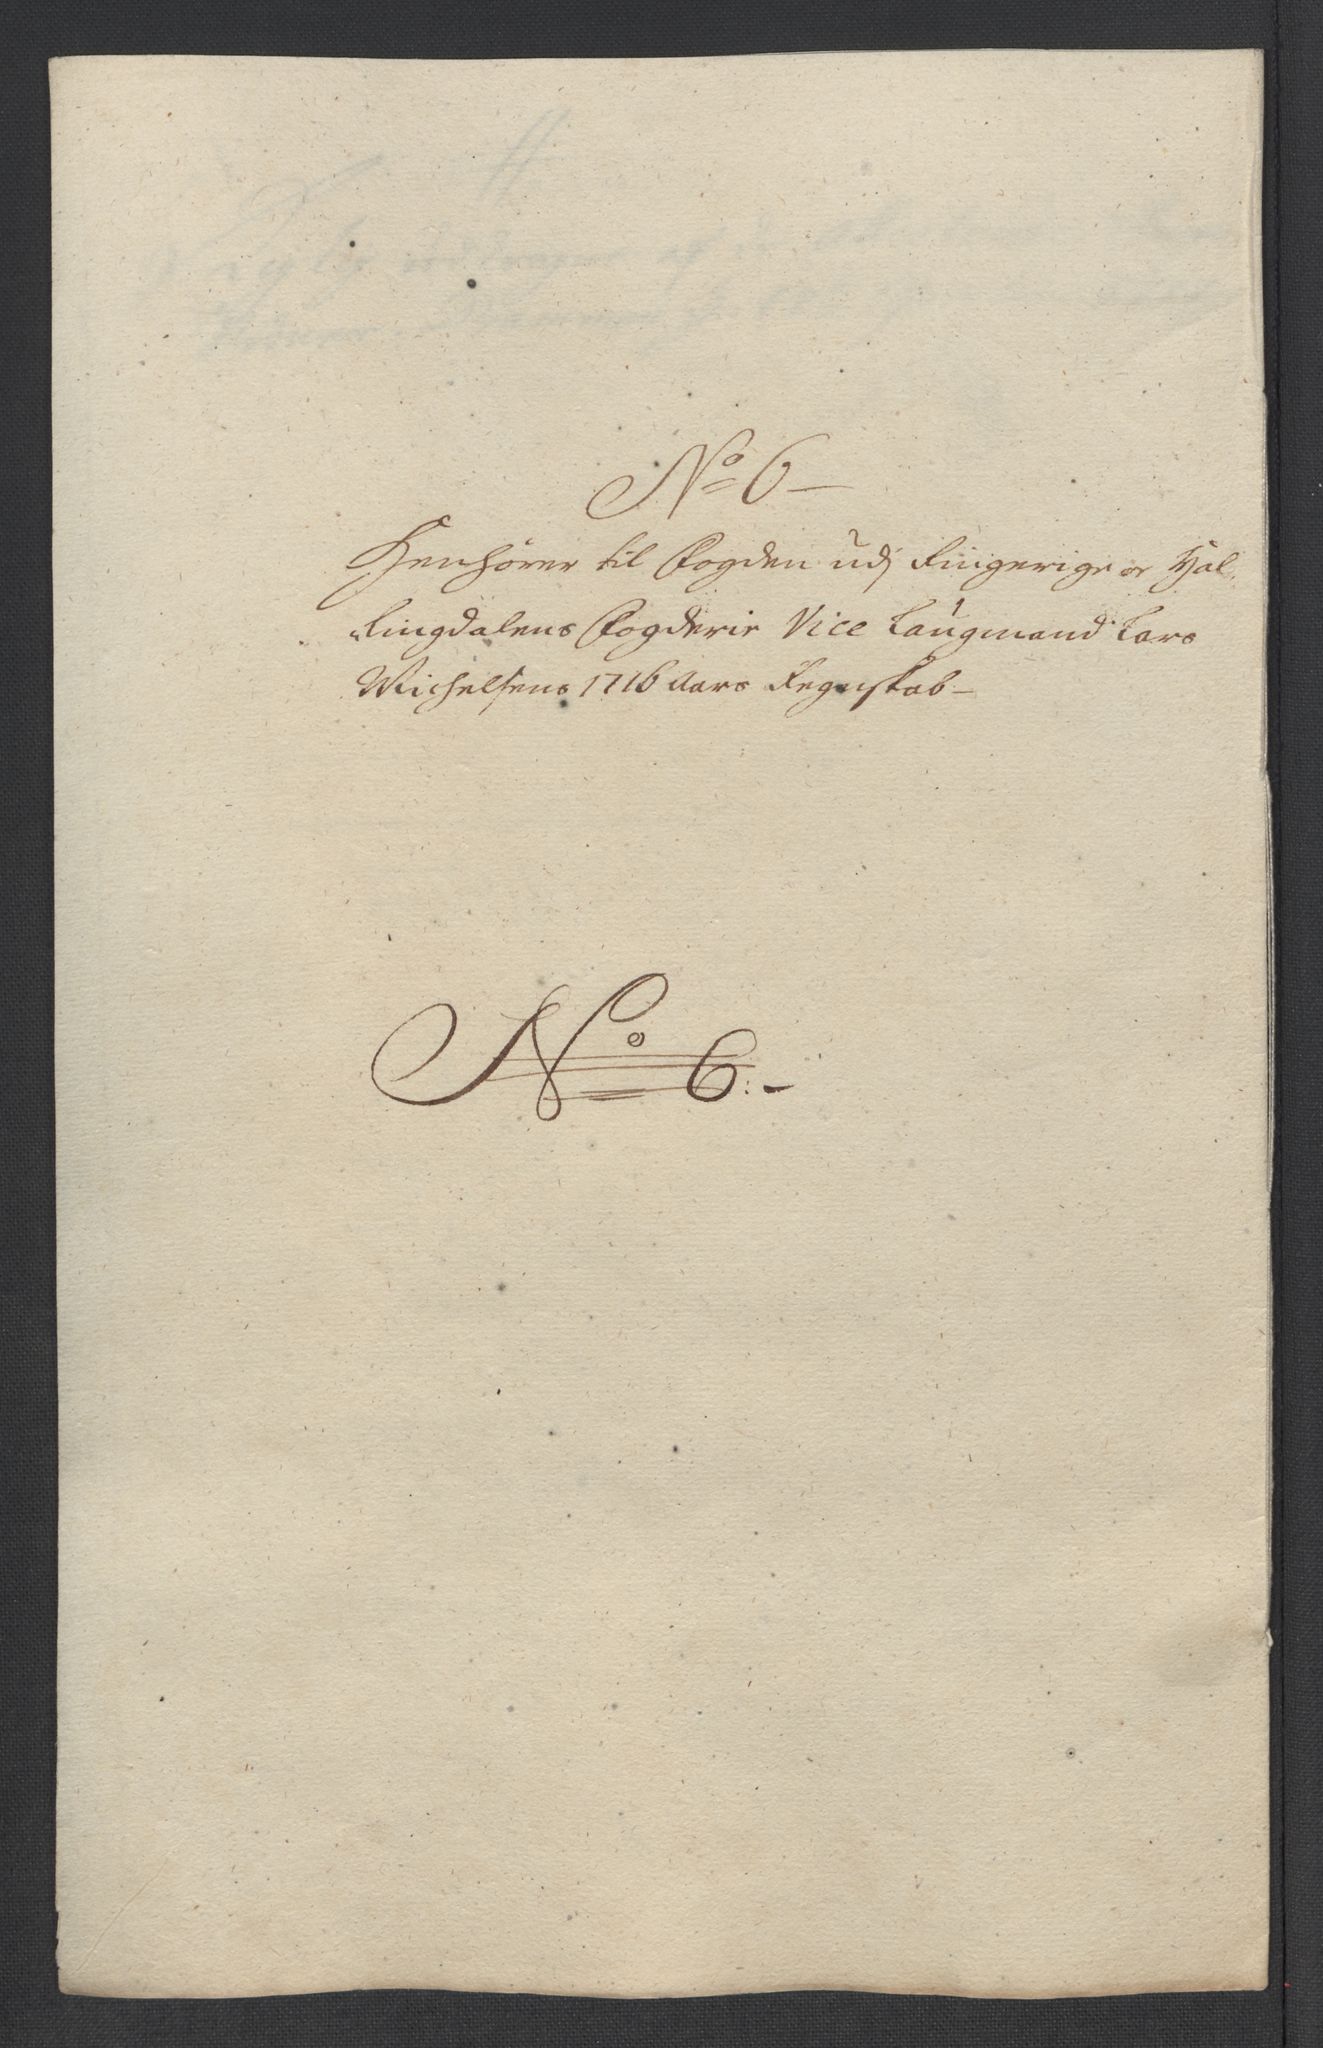 No 6
Henhörer til Fogden udj Ringerige og Hal-
lingdalens Fogderie Vice Laugmand Lars
Michelsens 1716 Aars Regnskab
No 6.